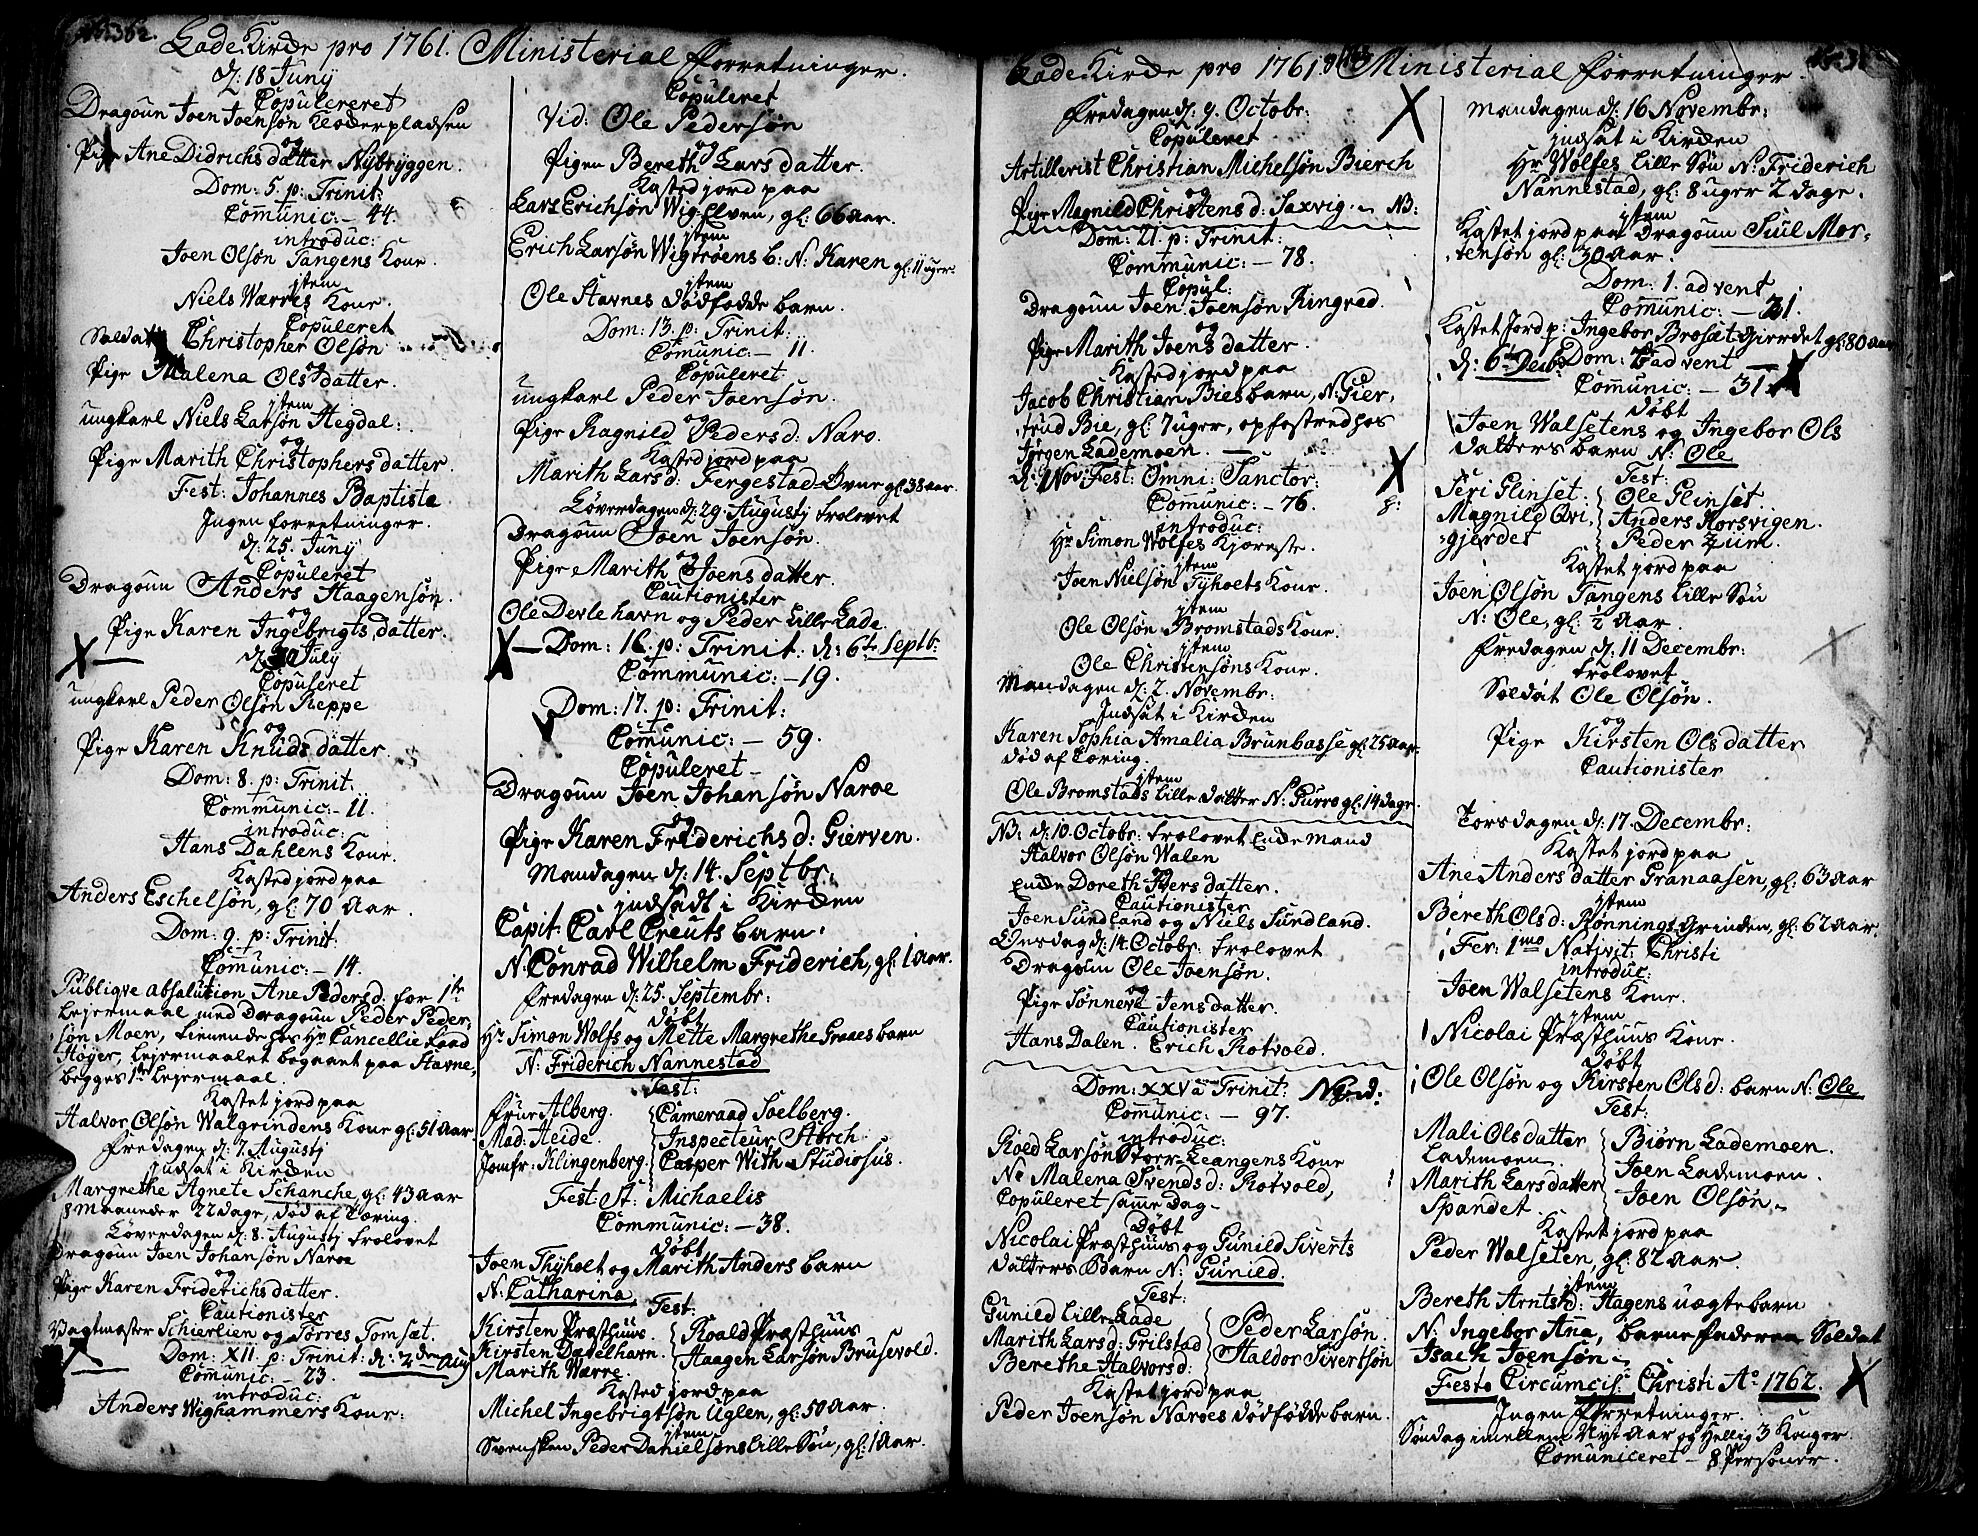 Lade Kirche pro 1761. Ministerial forretninger.
d: 18 Juny
Copulereret
Dragoun Joen Joensøn Kloderpladsen
og
Pige Ane Didrichsdatter Nybryggen.
Dom: 5. p: Trinit
Com̄unic: – 44.
introduc:
Joen Olsøn Tangens Kone.
jtem
Niels Wærres Kone.
Copuleret
Soldat Christopher Olsøn
og
Pige Malena Olsdatter.
jtem
ungkarl Niels Larsøn Hegdal:
og
Pige Marith Christophersdatter.
Fest: Johannes Baptista
Jngen forretninger.
d: 25. Juny
Copuleret
Dragoun Anders Haagensøn.
og
Pige Karen Ingebrigtsdatter.
July
Copuleret
ungkarl Peder Olsøn Reppe
og
Pige Karen Knudsdatter
Dom: 8. p: Trinit.
Communic: – 11.
introduc:
Hans Dahlens Kone.
Kasted jord paa
Anders Eschelsøn, gl: 70 Aar.
Dom: 9. p: Trinit:
Com̄unic: – 14.
Publiqve absolution Ane Pedersd: for 1te
Lejermaal med Dragoun Peder Peder-
søn Moen, tienende hos Hr Cancellie Raad
Høyer, Lejermaalet begaaet paa Havne,
begges 1te Lejermaal.
Kastet jord paa
Halvor Olsøn Walgrindens Kone gl: 51 Aar
Fredagen d: 7. Augustj
Jndsat i Kirchen
Margrethe Agnete Schanche, gl: 43 Aar
8 Maaneder 22 dage, død af Tæring.
Løverdagen d: 8. Augustj trolovet
Dragoun Joen Johansøn Naroe
og
Pige Karen Friderichsdatter.
Cautionister
Vagtmæster Schierlien og Torres Tomsæt.
Dom: XII. p: Trinit: d: 2den Aug
Com̄unic: – 23.
introduc:
Anders Wighammers Kone:
Copuleret
Vid: Ole Pedersøn
og
Pigen Bereth Larsdatter.
Kasted jord paa
Lars Erichsøn Wig Elven, gl: 66 Aar.
jtem
Erich Larsøn Wigtrøens b: N: Karen gl: 11 uger.
jtem
Ole Stavnes dødfødde barn.
Dom: 13. p: Trinit.
Com̄unic: – 11.
Copuleret
ungkarl Peder Joensøn.
og
Pige Ragnild Pedersd: Naro.
Kasted jord paa
Marith Larsd: Fergestad-Øvne gl: 38 aar.
Løverdagen d: 29. Augustj trolovet
Dragoun Joen Joensøn.
og
Pige Marith Joensdatter.
Cautionister
Ole Devlehavn og Peder Lille Lade.
Dom: 16. p: Trinit: d: 6te Septb:
Communic: – 19.
Dom: 17. p: Trinit:
Com̄unic: – 59.
Copuleret
Dragoun Joen Johansøn Naroe
og
Pige Karen Friderichsd: Gierven.
Mandagen d: 14. Septbr:
jndsadt i Kirchen
Capit: Carl Creuts barn
N: Conrad Wilhelm Friderich, gl: 1 Aar.
Fredagen d: 25. Septembr:
Døbt
Hr Simon Wolfs og Mette Margrethe Graaes barn
N: Friderich Nannestad
Test:
Frue Alberg. Cameraad Soelberg.
Mad: Heide. Inspecteur Storch
Jomfr: Klingenberg. Casper With Studiosus.
Fest: St: Michaelis
Communic: – 38.
Døbt
Joen Thyholt og Marith Anders barn
N: Catharina
Test:
Kirsten Præsthuus. Roald Præsthuus
Kirsten Devlehavn. Haagen Larsøn Brusevold.
Marith Wærre.
Kasted jord paa
Michel Ingebrigtsøn Uglen, gl: 50 Aar.
jtem
Svensken Peder Danielsøns Lille Søn, gl: 1 Aar.
Lade Kirche pro 1761. Ministerial forretninger.
Fredagen d: 9. Octobr:
Copuleret
Artillerist Christian Michelsøn Bierch
og
Pige Magnild Christensd: Saxvig. NB:
Dom: 21. p: Trinit:
Communic: – 78.
Copul:
Dragoun Joen Joensøn Ringred.
og
Pige Marith Joensdatter.
Kasted jord paa
Jacob Christian Bies barn, N: Gier,
trud Bie, gl: 7 uger, opfostred hos
Jørgen Lademoen.
d: 1 Nov: Fest: Omni: Sanctor:
Com̄unic: – 76.
introduc:
Hr Simon Wolfes Kjæreste.
jtem
Joen Nielsøn Tyholts Kone.
jtem
Ole Olsøn Bromstads Kone.
jtem
Ole Christensøns Kone.
Mandagen d: 2. Novembr:
Jndsat i Kirchen
Karen Sophia Amalia Brunbasse gl: 25 Aar
død af Tæring.
jtem
Ole Bromstads Lille datter N: Gurro gl: 14 dage.
NB: d: 10. Octobr: trolovet Enchemand
Halvor Olsøn Walen
og
Enche Doreth Iversdatter.
Cautionister
Joen Sundland og Niels Sundland.
Onsdag d: 14 Octobr: trolovet
Dragoun Ole Joensøn.
og
Pige Sønnevi Jensdatter.
Cautionister
Hans Dalen. Erich Rotvold.
Dom: XXV a Trinit:
Com̄unic: – 97.
introduc:
Roed Larsøn Storr-Leangens Kone
No Malena Svendsd: Rotvold,
Copuleret samme dag.
Døbt
Nicolai Præsthuus og Gunild Siverts
datters barn N: Gunild.
Test:
Gunild Lille Lade Peder Larsøn.
Marith Larsd: Grilstad Haldor Sivertsøn
Berethe Halvorsd:
Kastet jord paa
Peder Joensøn Naroes dødfødde barn.
Mandagen d: 16 Novembr:
jndsat i Kirchen
Hr Wolfes Lille Søn N: Friderich
Nannestad, gl: 8 uger 2 dage.
jtem
Kastet jord paa Dragoun Siul Mor,
tensøn gl: 30 Aar.
Dom: 1. advent
Com̄unic: – 21.
Kastet Jord p: Ingebor Brosæt-Gierdet gl: 80 aar
d: 6te Decbr Dom: advent
Com̄unic: – 31.
døbt
Joen Walsetens og Ingebor Ols
datters barn N: Ole
Test:
Seri Glinset. Ole Glinset
Magnild Qvi, Anders Korsvigen.
gjerdet Peder Zum.
Kastet jord paa
Joen Olsøn Tangens Lille Søn
N: Ole, gl: ½ Aar.
Fredagen d: 11 Decembr:
trolovet
Soldat Ole Olsøn.
og
Pige Kirsten Olsdatter
Cautionister
Torsdagen d: 17. Decembr:
Kastet jord paa
Ane Andersdatter Granaasen, gl: 63 Aar
jtem
Bereth Olsd: Rønnings Grinden, gl: 62 Aar
Fer: 1mo Nativit: Christi
introduc:
Joen Walsetens Kone.
jtem
Nicolai Præsthuus Kone.
Døbt
Ole Olsøn og Kirsten Olsd: barn N: Ole
Test:
Mali Olsdatter Biørn Lademoen.
Lademoen. Joen Lademoen.
Marith Larsdatter Joen Olsøn.
Spandet.
Kastet jord paa
Peder Walseten, gl: 82 Aar.
jtem
Bereth Arntsd: Hagens uægte barn
N: Ingebor Ana, barnefaderen Soldat
Isach Joensøn.
Festo Circumcis: Christi Ao 1762.
Jngen forretninger.
Søndag imellem Nyt Aar og Hellig 3 Konger
Com̄uniceret – 8 Personer.